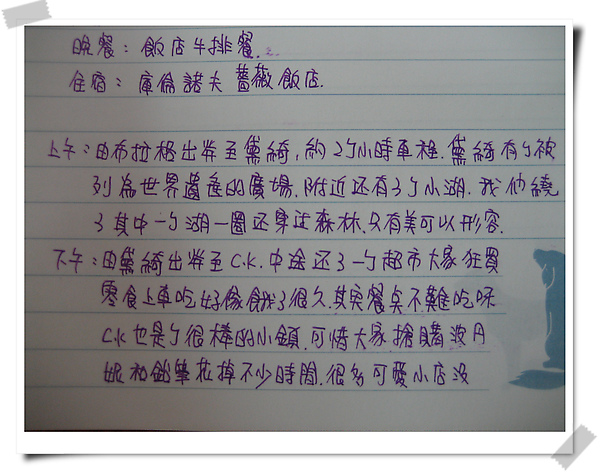 晚餐：飯店牛排餐.
住宿：庫倫諾夫薔薇飯店.
上午：由布拉格出発至黛綺,約2个小時車程.黛綺有个被
列為世界遺產的廣場.附近还有3个小湖.我们繞
了其中一个湖一圈还穿过森林.只有美可以形容.
下午：由黛綺出発至C.K.中途还了一个超市大家狂買
零食上車吃好像餓了很久.其实餐桌不難吃呀
C.K也是个很棒的小鎮.可惜大家搶購波丹
妮和鉛筆花掉不少時間.很多可愛小店沒